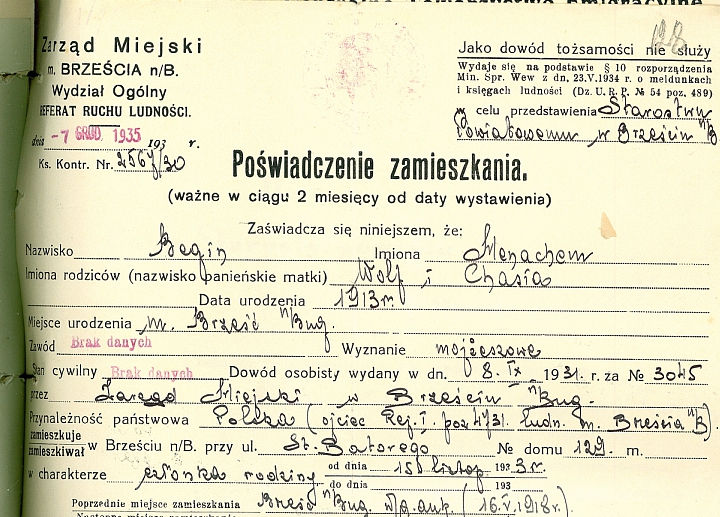 Zarząd Miejski
m. BRZEŚCIA n/B.
Wydział Ogólny
REFERAT RUCHU LUDNOŚCI.
dnia -7 GRUD 1935 193 r.
Ks. Kontr. Nr. 2567/30
128
Jako dowód tożsamości nie służy
Wydaje się na podstawie § 10 rozporządzenia
Min. Spr. Wew z dn. 23.V.1934 r. o meldunkach
i księgach ludności (Dz. U. R. P. № 54 poz. 489)
w celu przedstawienia Starostwu
Powiatowemu w Brześciu n/B
Poświadczenie zamieszkania.
(ważne w ciągu 2 miesięcy od daty wystawienia)
Zaświadcza się niniejszem, że:
Nazwisko Begin Imiona Menachem
Imiona rodziców (nazwisko panieńskie matki) Wolf i Chasia
Data urodzenia 1913 r.
Miejsce urodzenia m. Brześć n/Bug.
Zawód Brak danych Wyznanie mojżeszowe
Stan cywilny Brak danych Dowód osobisty wydany w dn. 8. IX 1931. r. za № 3045
przez Zarząd Miejski w Brześciu n/Bug.
Przynależność państwowa Polska (ojciec Rej. I. poz 4731. ludn. m. Brześcia n/B).
zamieszkuje
zamieszkiwał w Brześciu n/B. przy ul. St. Batorego № domu 129. m.
w charakterze członka rodziny od dnia 15 listop 1933 r.
do dnia 193
Poprzednie miejsce zamieszkania Brześć n/Bug. w/g. ank. (16.V.1918 r.)